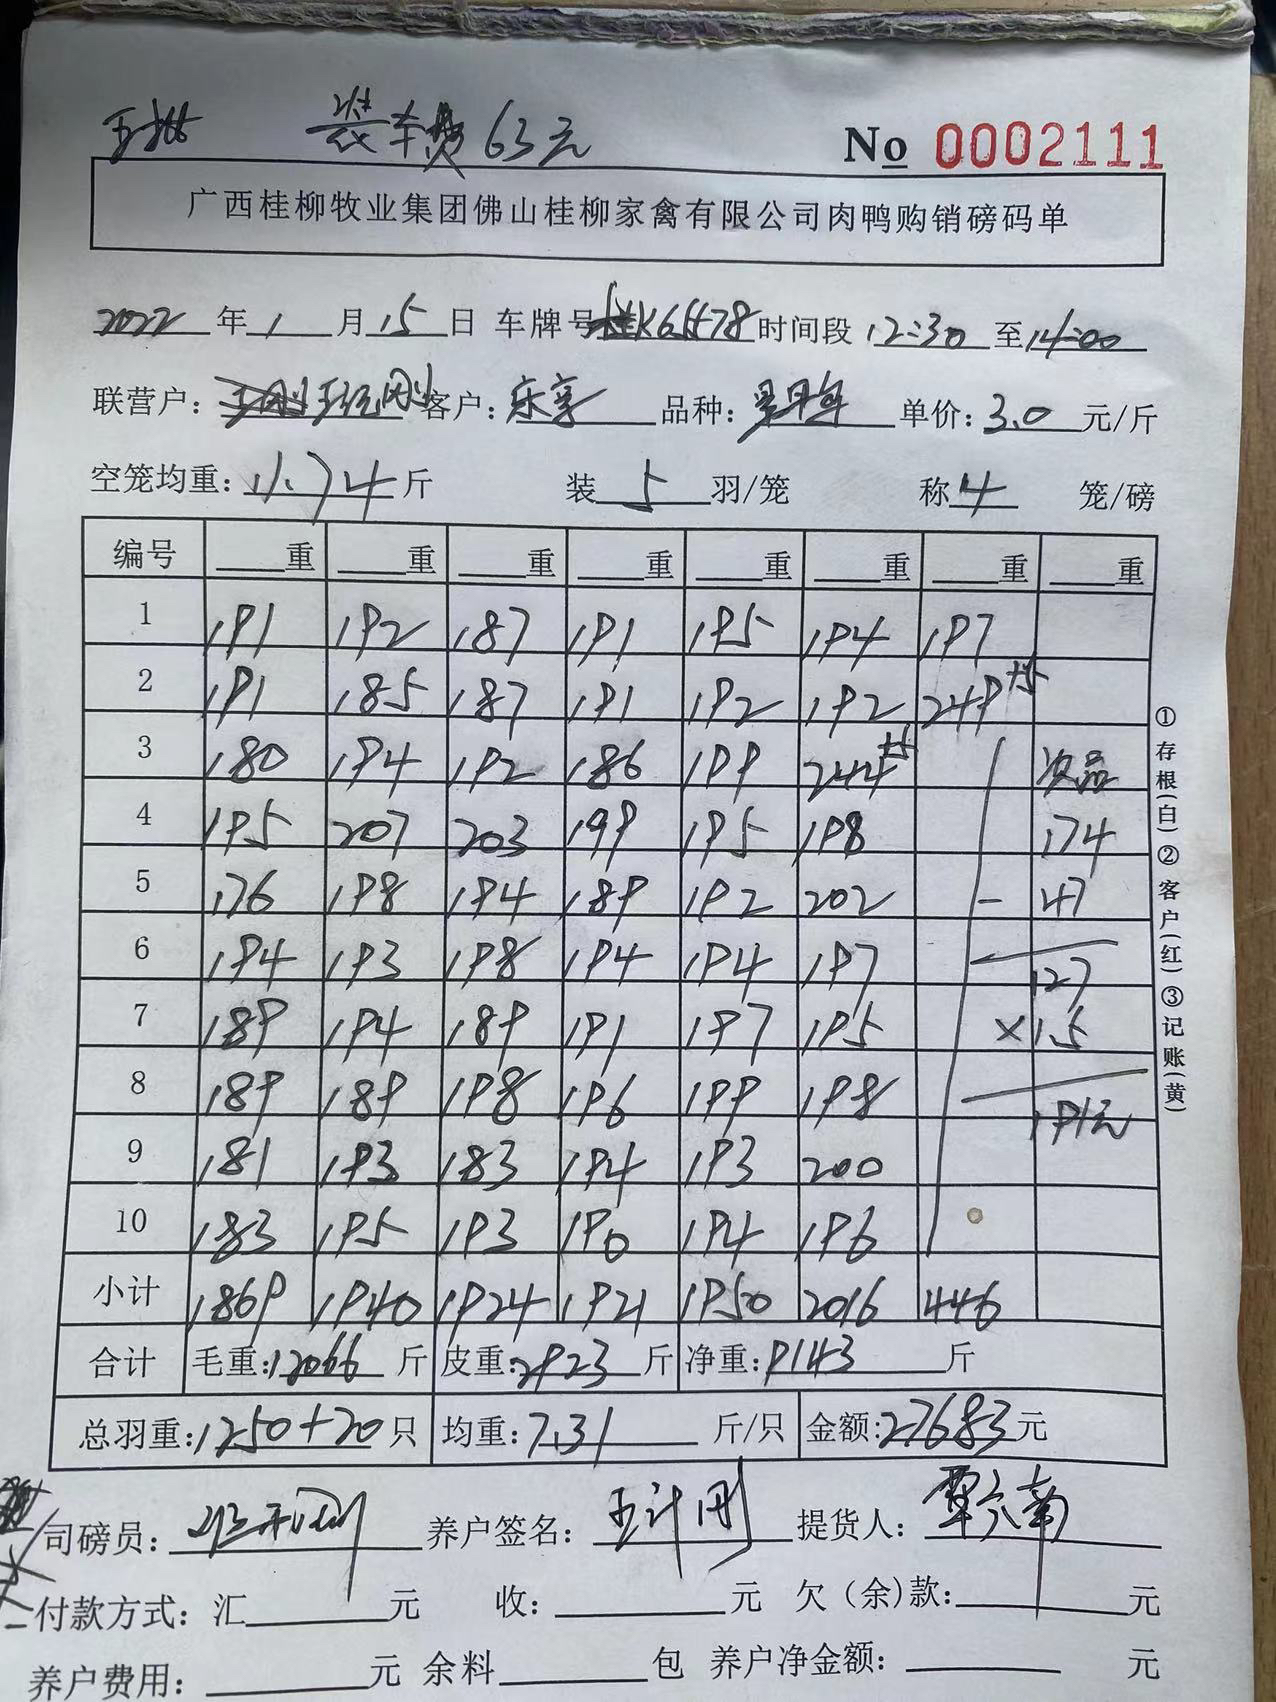 装车费63元 No 0002111
广西桂柳牧业集团佛山桂柳家禽有限公司肉鸭购销磅码单
2022年1月15日 车牌号 K65578 时间段12:30至14:00
联营户： 客户：乐享 品种： 单价：3.0元/斤
空笼均重：11.74斤 装5羽/笼 称4笼/磅
编号 重 重 重 重 重 重 重 重
1 191 192 187 191 195 194 197
2 191 185 187 191 192 192 249+5
3 180 194 192 186 199 244+5 次品
4 195 207 203 199 195 198 174
5 176 198 194 189 192 202 - 47
6 194 193 198 194 194 197 127
7 189 194 189 191 197 195 ×1.5
8 189 189 198 196 199 198 191元
9 181 193 183 194 193 200
10 183 195 193 190 194 196
小计 1869 1940 1924 1921 1950 2016 446
合计 毛重:12066斤 皮重:2923斤 净重:9143斤
总羽重:1250+20只 均重:7.31斤/只 金额:27683元
司磅员： 养户签名： 提货人：覃六南
付款方式：汇 元 收： 元 欠（余)款： 元
养户费用： 元 余料 包 养户净金额： 元
①存根(白)②客户(红)③记账(黄)